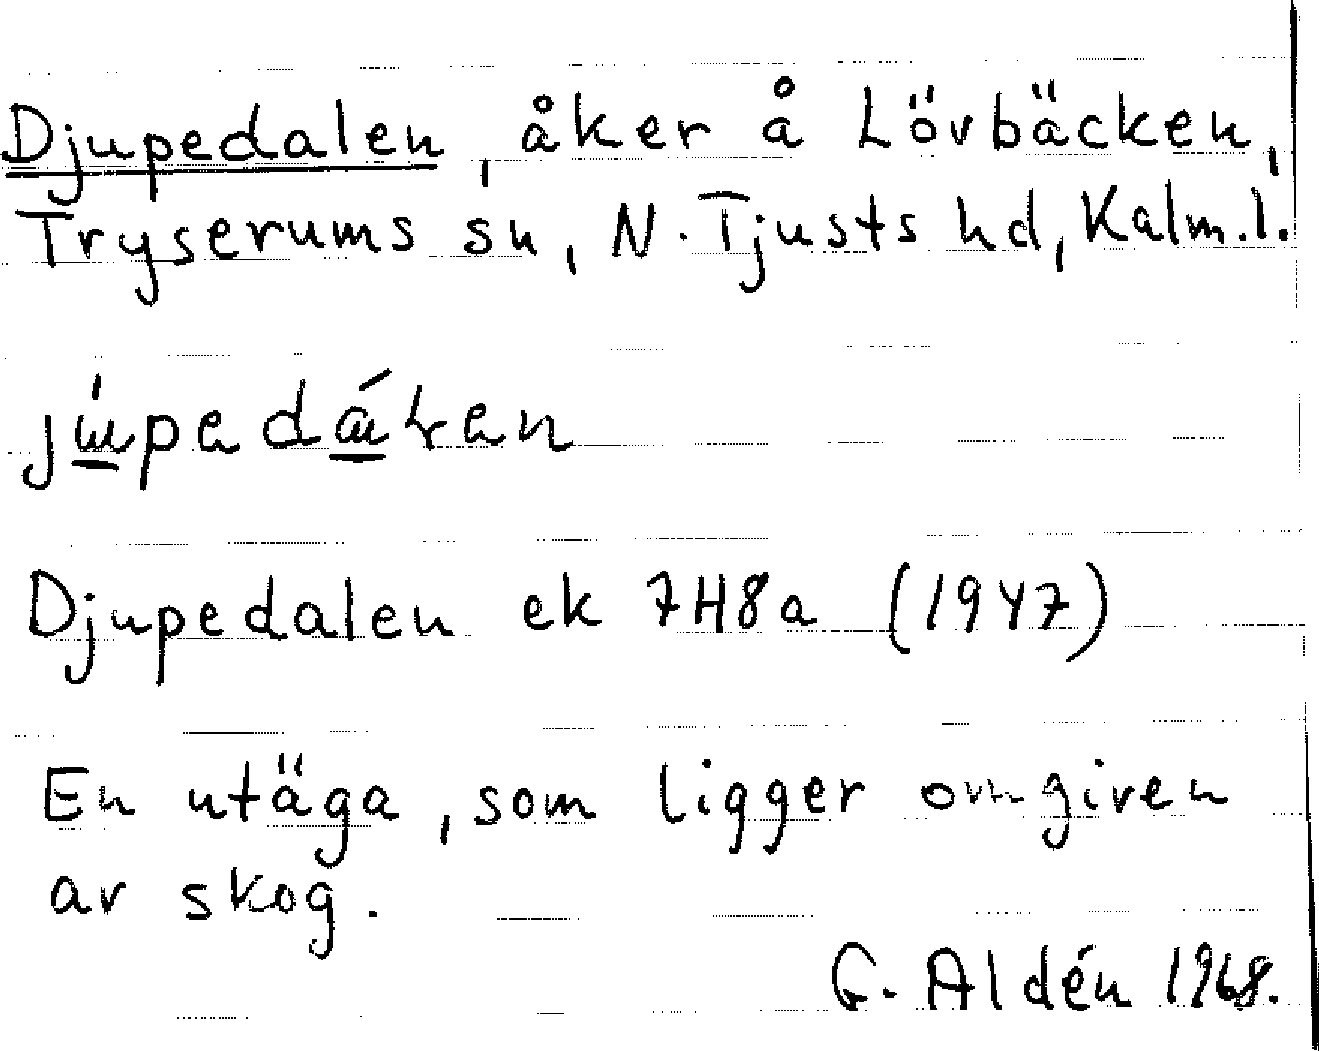 Djupedalen, åker å Lövbäcken,
Tryserums sn, N. Tjusts hd, Kalm.l.
Djupedalen ek 7H8a (1947)
En utäga, som ligger omgiven
av skog.
G. Aldén 1968.